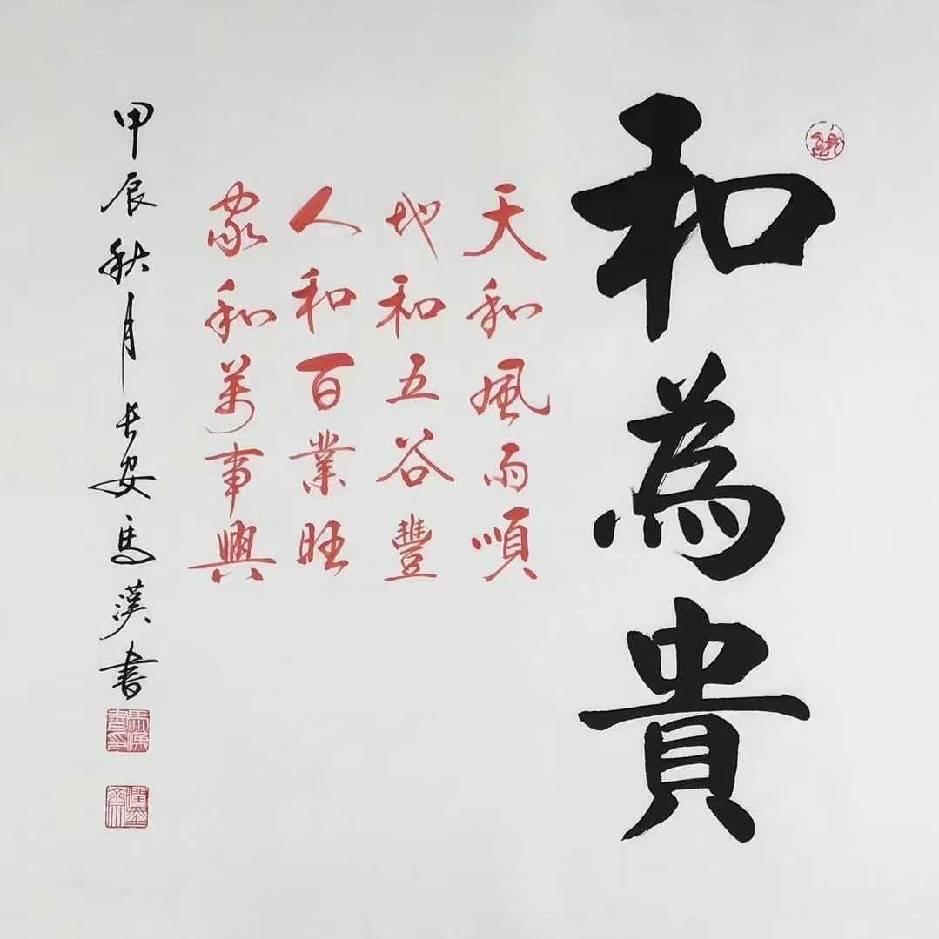 和為貴
天和風雨順
地和五谷豐
人和百業旺
家和萬事興
甲辰秋月長安馬漢書